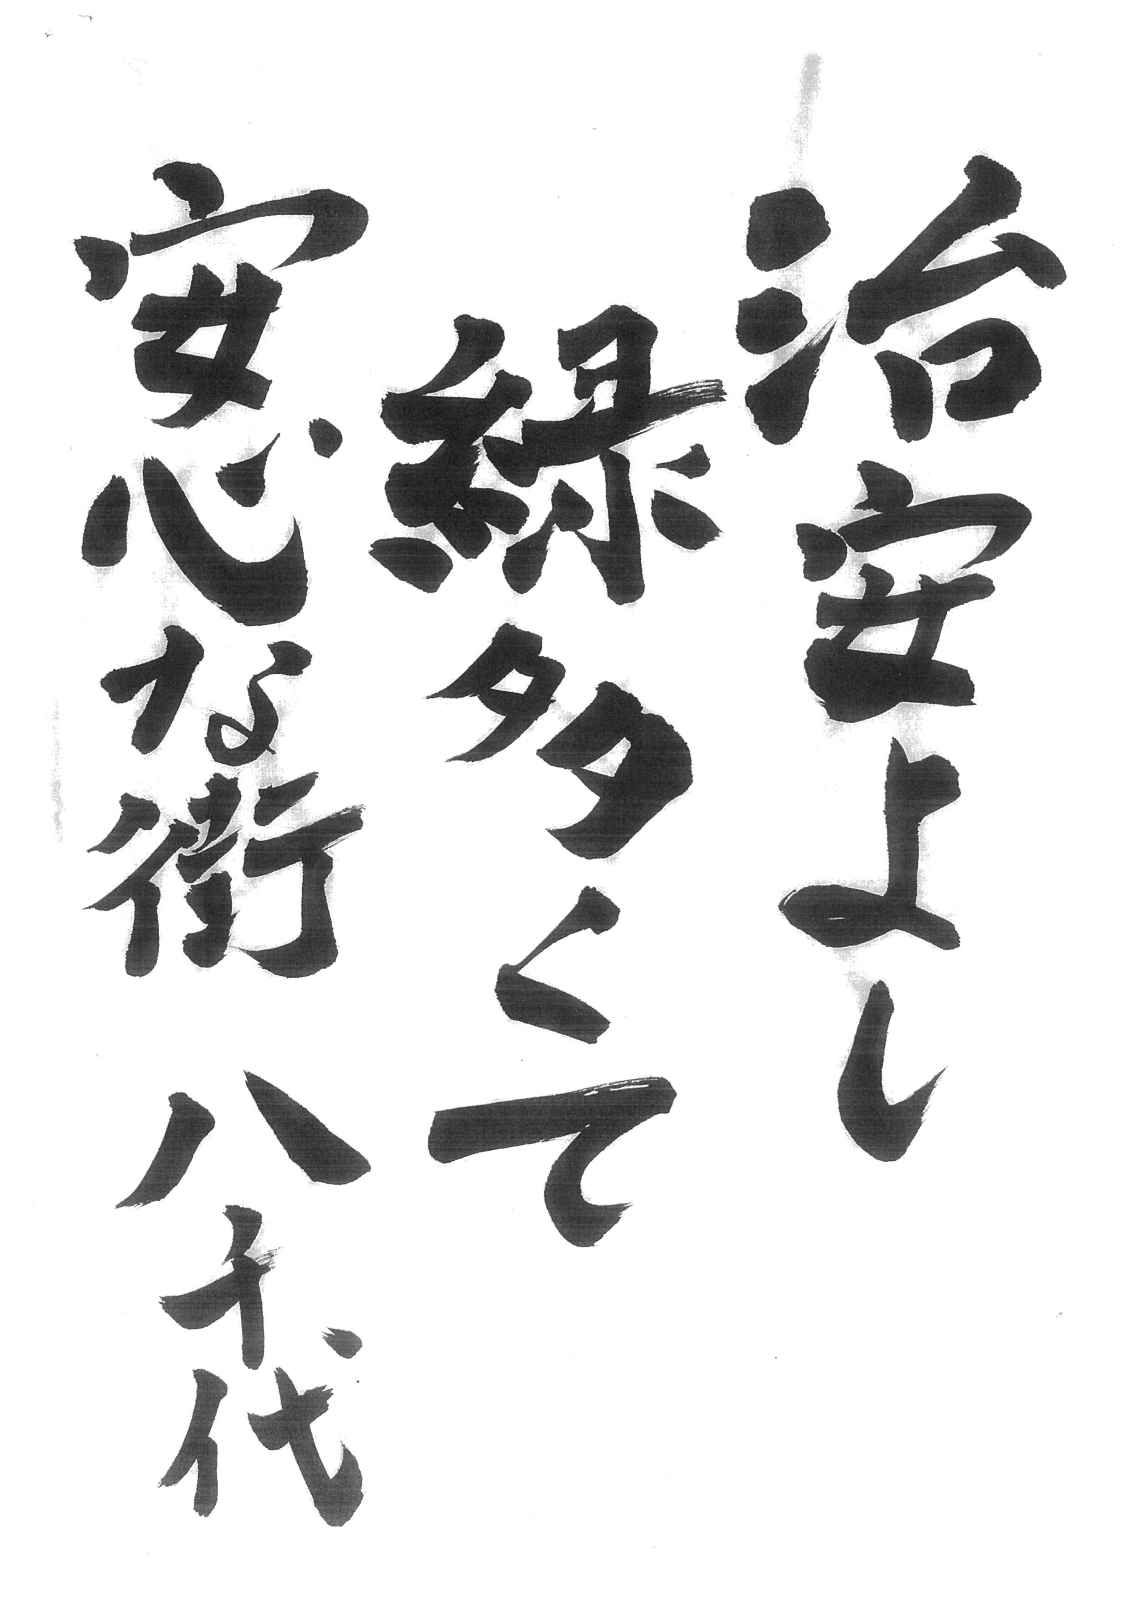 治安よし
緑多くて
安心な街 八千代